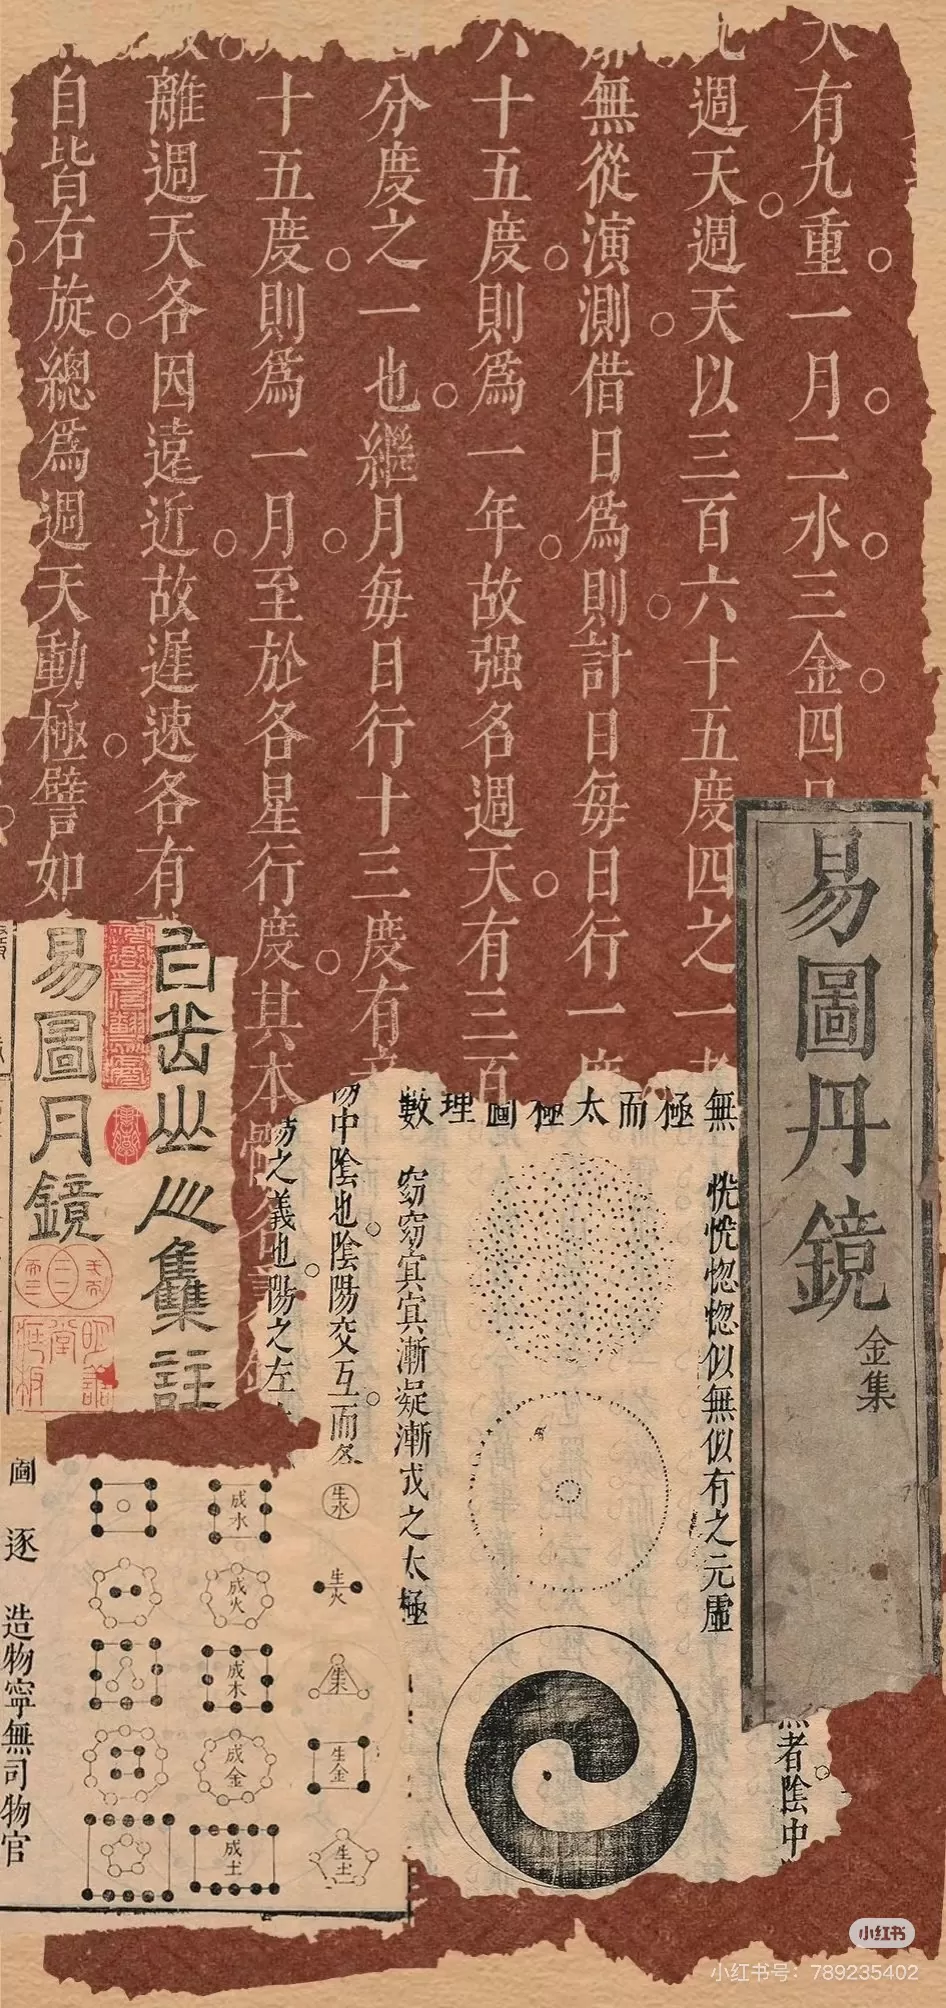 有九重一月二水三金四
週天週天以三百六十五度四之一
無從演測借日為則計日每日行一度
六十五度則為一年故强名週天有三百
分度之一也繼月每日行十三度有
十五度則為一月至於各星行度其本
離週天各因遠近故遲速各有
自皆右旋總為週天動極譬如
易圖丹鏡
金集
易圖月鏡
集註
無極而太極圖理數
恍恍惚惚似無似有之元虛
窈窈冥冥漸凝漸成之太極
中陰也陰陽交互而各
之義也陽之左
者陰中
生水
成水
生火
成火
生木
成木
生金
成金
生土
成土
圖
逐
造物寧無司物官
小红书
小红书号：789235402